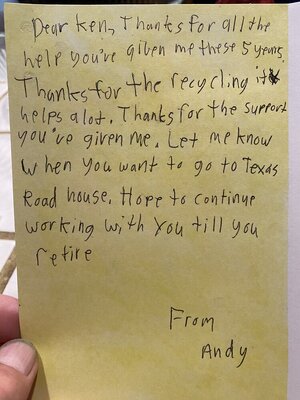 Dear Ken, Thanks for all the
help you've given me these 5 years.
Thanks for the recycling it
helps alot. Thanks for the support
you've given me. Let me know
when you want to go to Texas
Road house. Hope to continue
working with you till you
retire
From
Andy